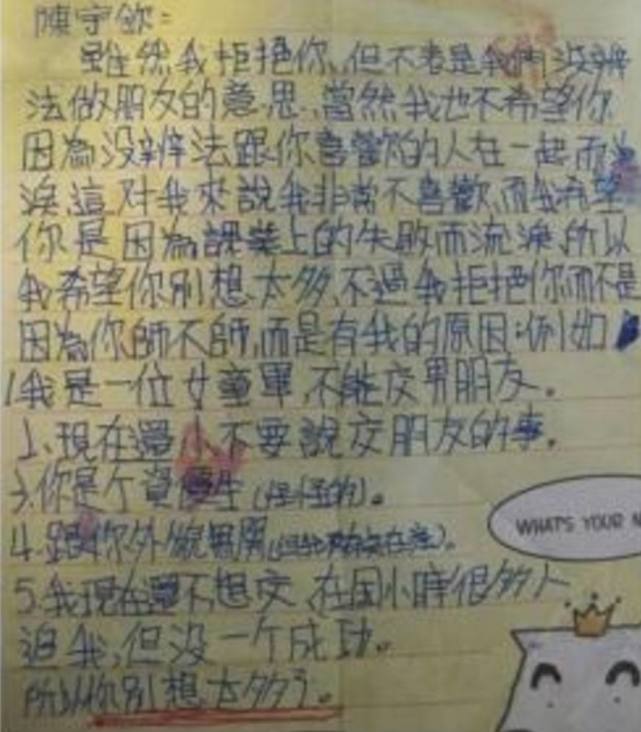 陳宇欽：
雖然我拒絕你，但不老是我們沒辦
法做朋友的意思，當然我也不希望你
因為沒辦法跟你喜歡的人在一起而
淚，這对我來說我非常不喜歡，而我希望
你是因為課業上的失敗而流淚，所以
我希望你別想太多，不過我拒把你而不是
因為你師不師，而是有我的原因：例如
1.我是一位女童軍，不能交男朋友。
2、現在還小不要說交朋友的事。
3.你是个資優生(怪怪的)。
4.跟你外貌無關
5.我現在還不想交，在国小時很多人
追我，但没一个成功。
所以你别想太多了。
WHATS YOUR N